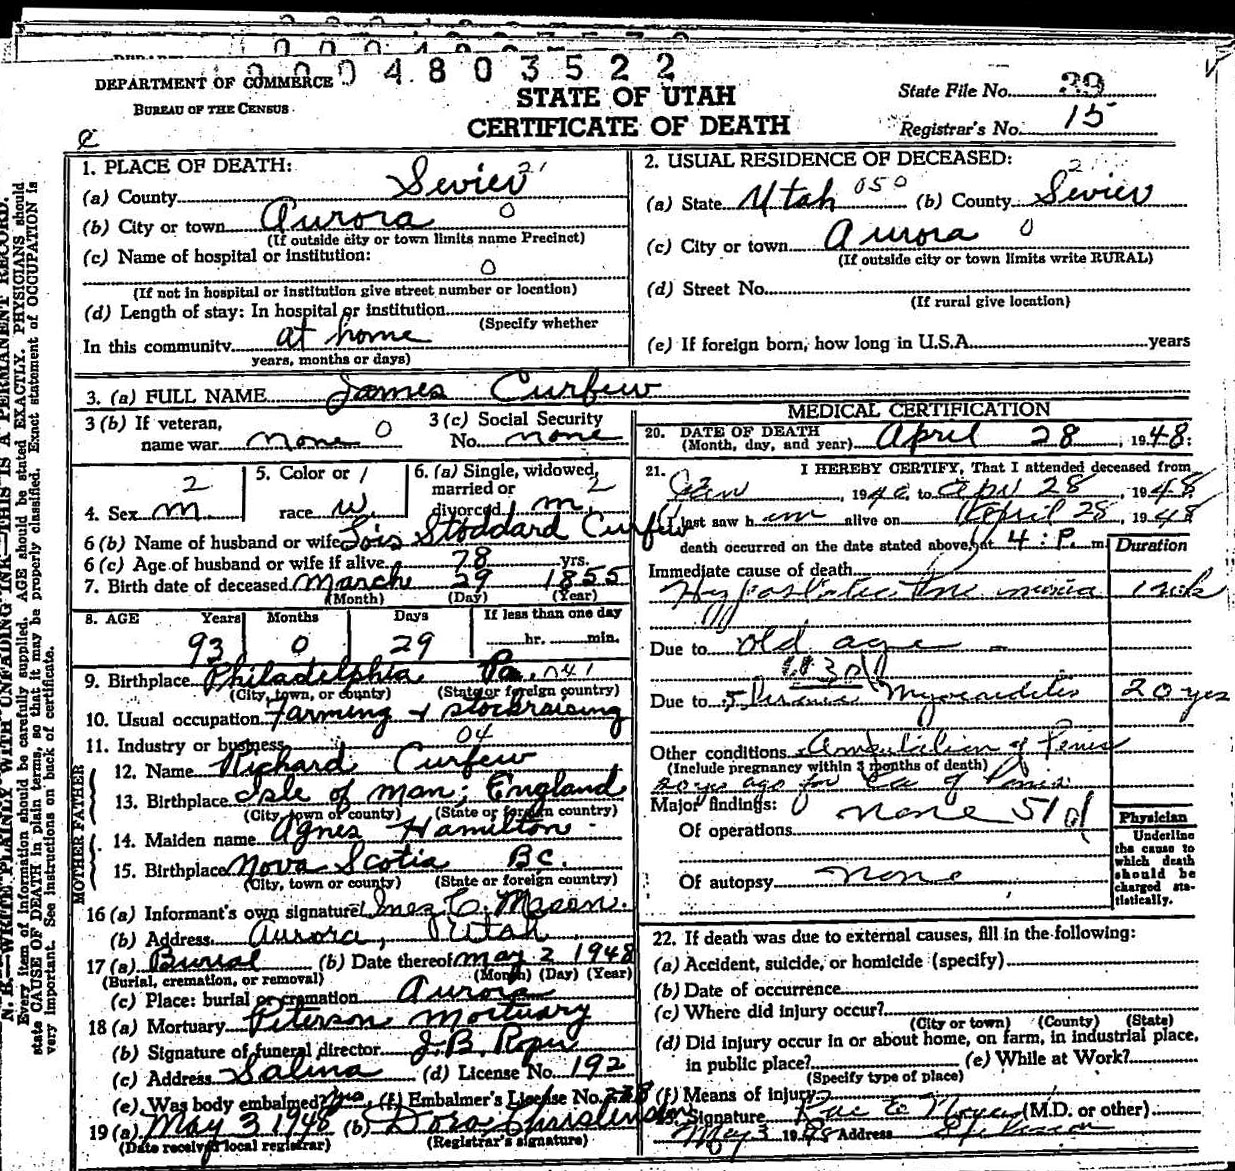 0 0 0 4 8 0 3 5 2 2
DEPARTMENT OF COMMERCE
BUREAU OF THE CENSUS
STATE OF UTAH
CERTIFICATE OF DEATH
State File No. 39
Registrar's No. 15
N. B.—WRITE PLAINLY WITH UNFADING INK—THIS IS A PERMANENT RECORD.
Every item of information should be carefully supplied. AGE should be stated EXACTLY. PHYSICIANS should
state CAUSE OF DEATH in plain terms, so that it may be properly classified. Exact statement of OCCUPATION is
very important. See instructions on back of certificate.
1. PLACE OF DEATH:
(a) County Sevier 21
(b) City or town Aurora 0
(If outside city or town limits name Precinct)
(c) Name of hospital or institution:
0
(If not in hospital or institution give street number or location)
(d) Length of stay: In hospital or institution
(Specify whether
In this community at home
years, months or days)
2. USUAL RESIDENCE OF DECEASED:
(a) State Utah 050 (b) County Sevier
(c) City or town Aurora 0
(If outside city or town limits write RURAL)
(d) Street No.
(If rural give location)
(e) If foreign born, how long in U.S.A. years
3. (a) FULL NAME James Curfew
3 (b) If veteran, name war none 0
3 (c) Social Security No. none
4. Sex m. 2
5. Color or race w. 1
6. (a) Single, widowed, married or divorced m. 2
6 (b) Name of husband or wife Lois Stoddard Curfew
6 (c) Age of husband or wife if alive 78 yrs.
7. Birth date of deceased March 29 1855
(Month) (Day) (Year)
8. AGE Years Months Days If less than one day
93 0 29 hr. min.
9. Birthplace Philadelphia Pa. 041
(City, town, or county) (State or foreign country)
10. Usual occupation Farming + stockraising
11. Industry or business 04
FATHER
12. Name Richard Curfew
13. Birthplace Isle of Man; England
(City, town or county) (State or foreign country)
MOTHER
14. Maiden name Agnes Hamilton
15. Birthplace Nova Scotia BC.
(City, town or county) (State or foreign country)
16 (a) Informant's own signature Inez C. Mason.
(b) Address Aurora, Utah
17 (a) Burial (b) Date thereof May 2 1948
(Burial, cremation, or removal) (Month) (Day) (Year)
(c) Place: burial or cremation Aurora
18 (a) Mortuary Peterson Mortuary
(b) Signature of funeral director J. B. Roper
(c) Address Salina (d) License No. 192
(e) Was body embalmed yes (f) Embalmer's License No.
19 (a) May 3 1948 (b) Dora Christensen
(Date received local registrar) (Registrar's signature)
MEDICAL CERTIFICATION
20. DATE OF DEATH
(Month, day, and year) April 28, 1948:
21. I HEREBY CERTIFY, That I attended deceased from
Jan 194 to Apr 28, 1948
I last saw him alive on April 28, 1948
death occurred on the date stated above, at 4: P. m
Duration
Immediate cause of death
Hypostatic Pneumonia 1 wk
Due to old age
Due to Myocarditis 20 yrs
Other conditions Amputation of Penis
(Include pregnancy within 3 months of death)
20 yrs ago for Ca of Penis
Major findings:
Of operations none 51d
Of autopsy none
Physician
Underline
the cause to
which death
should be
charged sta-
tistically.
22. If death was due to external causes, fill in the following:
(a) Accident, suicide, or homicide (specify)
(b) Date of occurrence
(c) Where did injury occur?
(City or town) (County) (State)
(d) Did injury occur in or about home, on farm, in industrial place,
in public place? (e) While at Work?
(Specify type of place)
(f) Means of injury
Signature Rae E Noyes (M.D. or other)
May 3 1948 Address